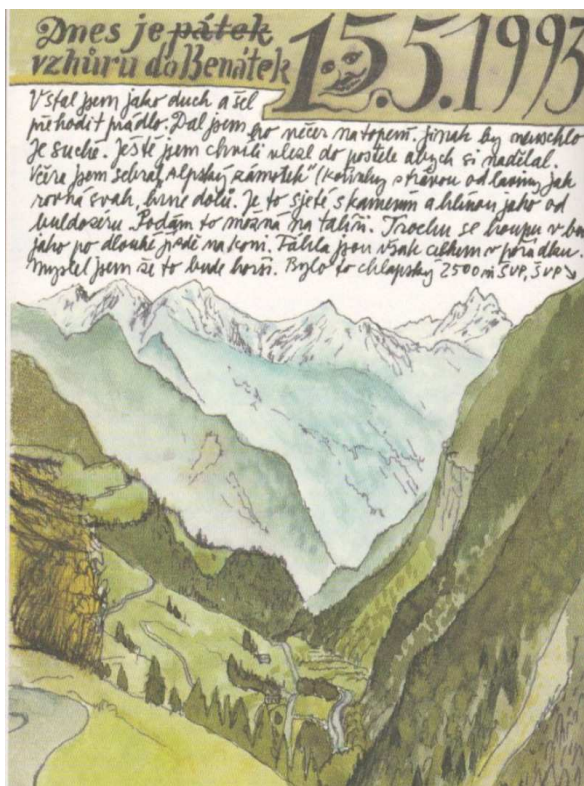 Dnes je pátek 15.5.1993
vzhůru do Benátek
Vstal jsem jako duch a šel
přehodit prádlo. Dal jsem ho večer na topení, jinak by neuschlo
Je suché. Ještě jsem chvíli vlezl do postele abych si nadělal.
Včera jsem sebral "Alpský zámotek" (kotrby s trávou od laviny jak
rovná svah, hrne dolů. Je to sjeté s kamením a hlínou jako od
buldozéru. Podám to možná na talíři. Trochu se houpu v
jako po dlouhé jízdě na koni. Táhla jsou však celkem v pořádku.
Myslel jsem že to bude horší. Bylo to chlapsky 2500 m ŠVP, ŠVP